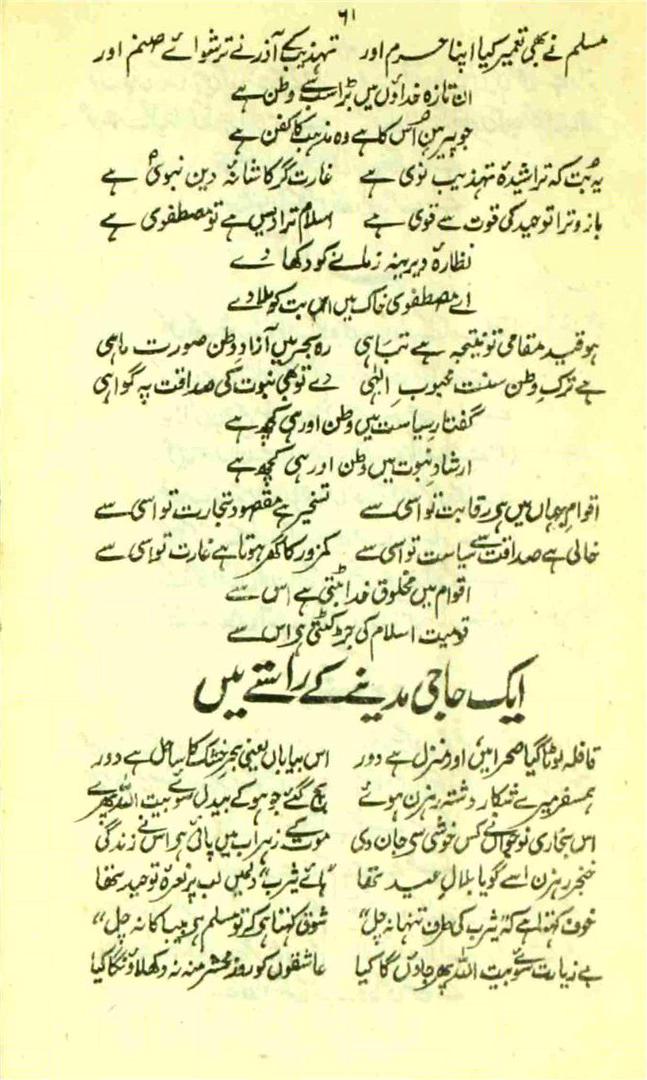 ۶۱
مسلم نے بھی تعمیر کیا اپنا حرم اور تہذیب کے آذر نے ترشوائے صنم اور
ان تازہ خداؤں میں بڑا سب سے وطن ہے
جو پیرہن اُس کا ہے وہ مذہب کا کفن ہے
یہ بُت کہ تراشیدۂ تہذیب نوی ہے غارت گر کاشانۂ دین نبوی ہے
بازو ترا توحید کی قوت سے قوی ہے اسلام ترا دیس ہے تو مصطفوی ہے
نظارۂ دیرینہ زمانے کو دکھا دے
اے مصطفوی خاک میں اس بت کو ملا دے
ہو قید مقامی تو نتیجہ ہے تباہی رہ بحر میں آزاد وطن صورت ماہی
ہے ترک وطن سنت محبوب الٰہی دے تو بھی نبوت کی صداقت پہ گواہی
گفتار سیاست میں وطن اور ہی کچھ ہے
ارشاد نبوت میں وطن اور ہی کچھ ہے
اقوام جہاں میں ہی رقابت تو اسی سے تسخیر ہے مقصود تجارت تو اسی سے
خالی ہے صداقت سے سیاست تو اسی سے کمزور کا گھر ہوتا ہے غارت تو اسی سے
اقوام میں مخلوق خدا بٹتی ہے اس سے
قومیت اسلام کی جڑ کٹتی ہی اس سے
ایک حاجی مدینے کے راستے میں
قافلہ لوٹا گیا صحرا میں اور منزل ہے دور اس بیاباں یعنی بحر خشک کا ساحل ہے دور
ہمسفر میرے شکار دشنۂ رہزن ہوئے بچ گئے جو ہو کے بیدل سوئے بیت اللہ پھرے
اس بخاری نوجواں نے کس خوشی سی جان دی موت کے زہراب میں پائی ہی اس نے زندگی
خنجر رہزن اسے گویا ہلال عید تھا "ہائے یثرب" دلمیں لب پر نعرۂ توحید تھا
خوف کہتا ہے کہ "یثرب کی طرف تنہا نہ چل" شوق کہتا ہی کہ تو مسلم ہی بیباکانہ چل"
بے زیارت سوئے بیت اللہ پھر جاؤں گا کیا عاشقوں کو روز محشر منہ نہ دکھلاؤنگا کیا